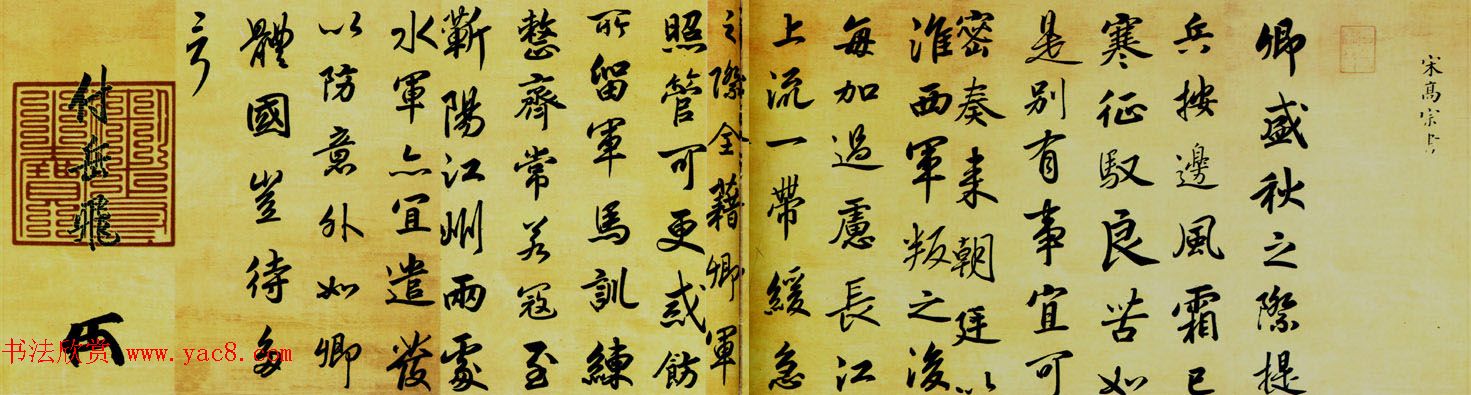 宋高宗書
卿盛秋之際提
兵按邊風霜已
寒征馭良苦如
是別有事宜可
密奏来朝廷以
淮西軍叛之後
每加過慮長江
上流一帶緩急
之際全藉卿軍
照管可更戒飭
所留軍馬訓練
整齊常若寇至
蘄陽江州兩處
水軍亦宜遣發
以防意外如卿
體國豈待多
言
付岳飛
书法欣赏 www.yac8.com